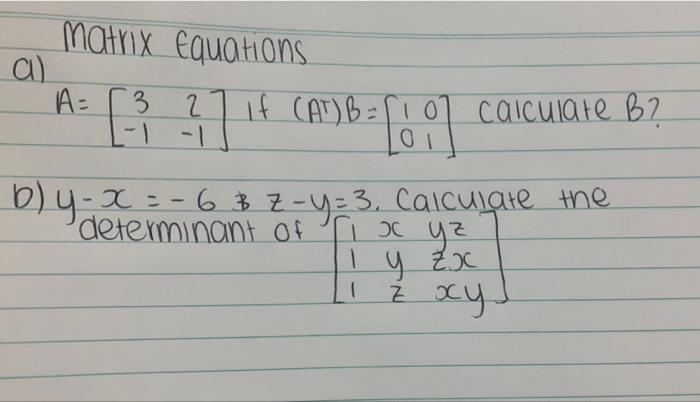 Matrix Equations
a)
A = [3 2] if (Aᵀ)B = [1 0] calculate B?
[-1 -1] [0 1]
b) y-x = -6 & z-y=3. Calculate the
determinant of [1 x yz]
[1 y zx]
[1 z xy]